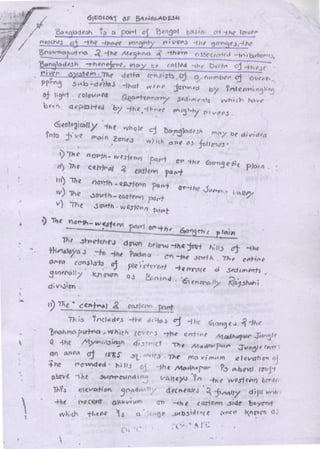 GEOLOGY OF BANGLADESH
Bangladesh is a part of Bengal basin at the lower
reaches of the three mighty rivers the ganges, the
Brahmaputra & the Meghna & them associated tributaries.
Bangladesh therefore, may be called the Delta of these
river system. The delta consists of a number of overla-
pping sub-deltas that were formed by Intermingling
of light coloured Quaternary sediments which have
been deposited by the three mighty rivers.
Geologically the whole of Bangladesh may be divided
into five main zones which are as follows-
i) The north-western part or the Gangetic plain.
ii) The central & eastern part
iii) The north-eastern part or the valley
iv) The south-eastern part
v) The south-western part
i) The north-western part or the Gangetic plain
The stretches down below the foot hills of the
Himalaya to the Padma on the south. The entire
area consists of pleistocene terrace & sediments,
generally known as Barind. Generally Rajshahi
division.
ii) The central & eastern part
This includes the deltas of the Ganges & the
Brahmaputra, which covers the entire Madhupur Jungle
& the Mymensingh district. The Madhupur Jungle covers
an area of 1585 sq. miles. The maximum elevation of
the rounded hills of the Madhupur is about
above the surrounding valleys in the western border
This elevation gradually decreases & finally dips under
the recent alluvium on the eastern side beyond
which there is a large subsidence area known as